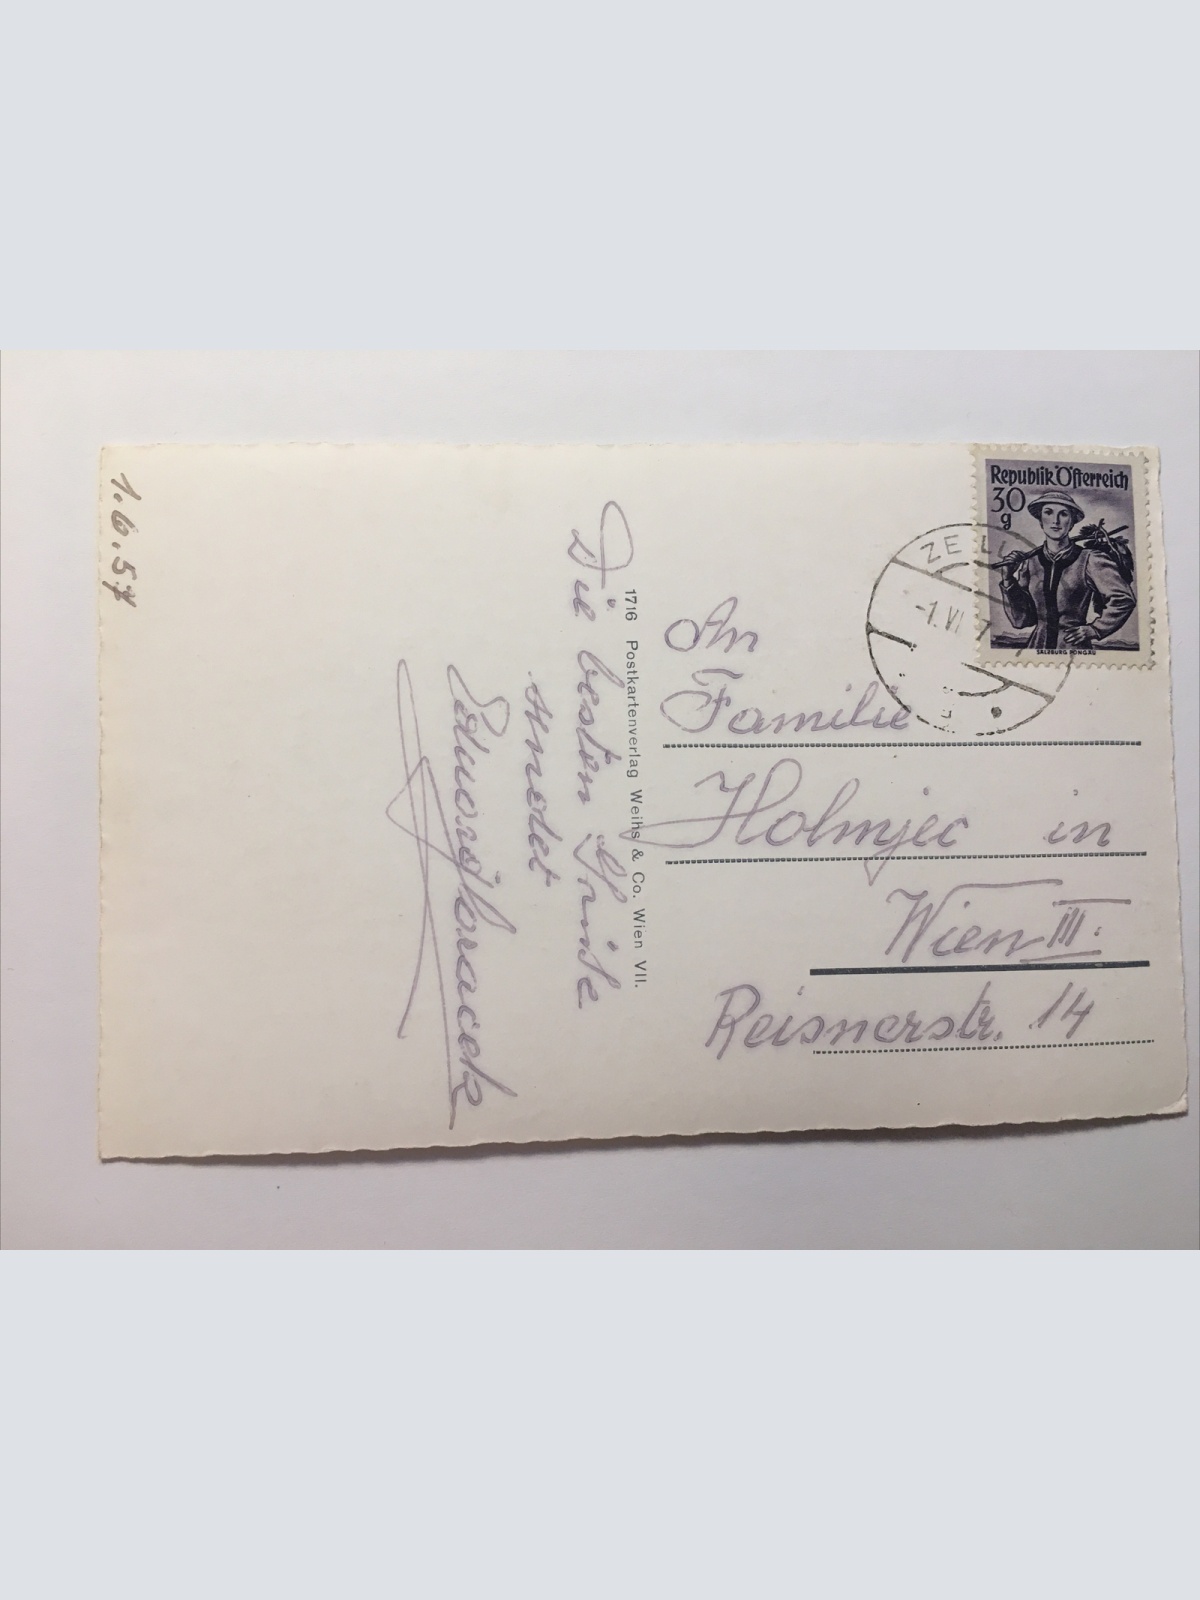 1.6.57
Die besten Grüße
sendet
1716 Postkartenverlag Weihs & Co. Wien VII.
Republik Österreich
30
g
SALZBURG PONGAU
ZELL
-1.VI. 7
An
Familie
Holmjec in
Wien III.
Reisnerstr. 14